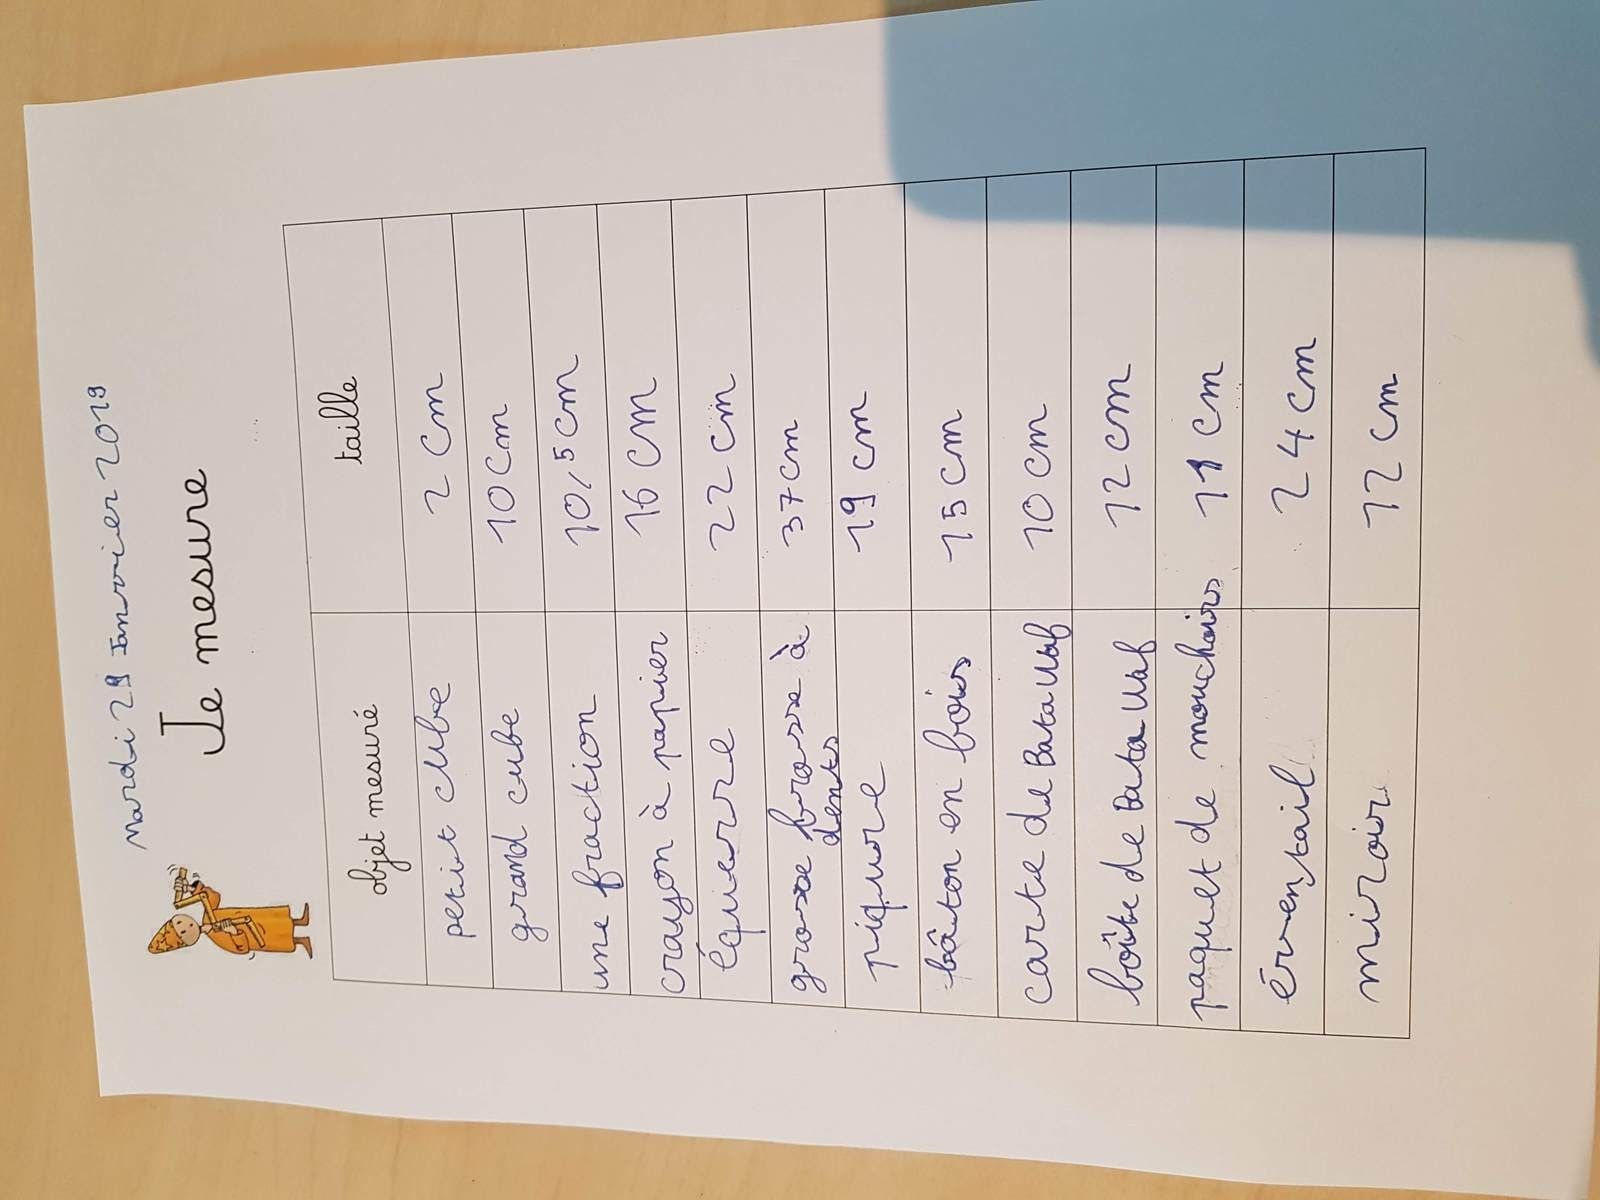 Mardi 29 Janvier 2019
Je mesure
objet mesuré taille
petit cube 2 cm
grand cube 10 cm
une fraction 10,5 cm
crayon à papier 16 cm
équerre 22 cm
grosse brosse à 37 cm
dents
piqure 19 cm
bâton en bois 15 cm
carte de Batawaf 10 cm
boîte de Batawaf 12 cm
paquet de mouchoirs 11 cm
éventail 24 cm
miroir 12 cm